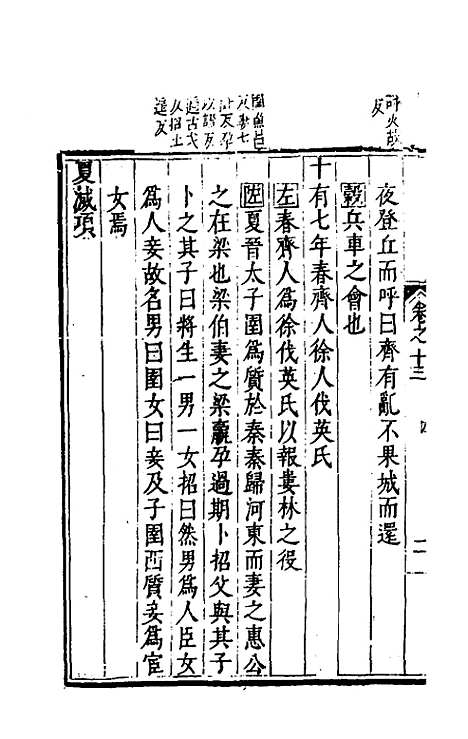 呼火故
反
圉魚呂
反
卷之十三
四
夜登丘而呼曰齊有亂不果城而還
穀兵車之會也
十有七年春齊人徐人伐英氏
左春齊人爲徐伐英氏以報婁林之役
附夏晉太子圉爲質於秦秦歸河東而妻之惠公
之在梁也梁伯妻之梁嬴孕過期卜招父與其子
卜之其子曰將生一男一女招曰然男爲人臣女
爲人妾故名男曰圉女曰妾及子圉西質妾爲宦
女焉
夏滅項